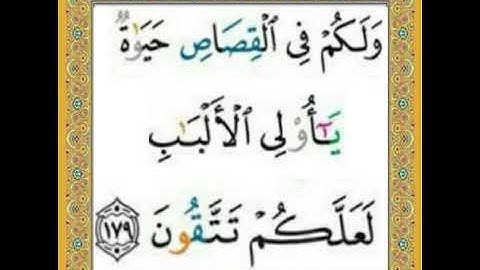 وَلَكُمْ فِى ٱلْقِصَاصِ حَيَوٰةٌ
يَـٰٓأُو۟لِى ٱلْأَلْبَـٰبِ
لَعَلَّكُمْ تَتَّقُونَ ١٧٩